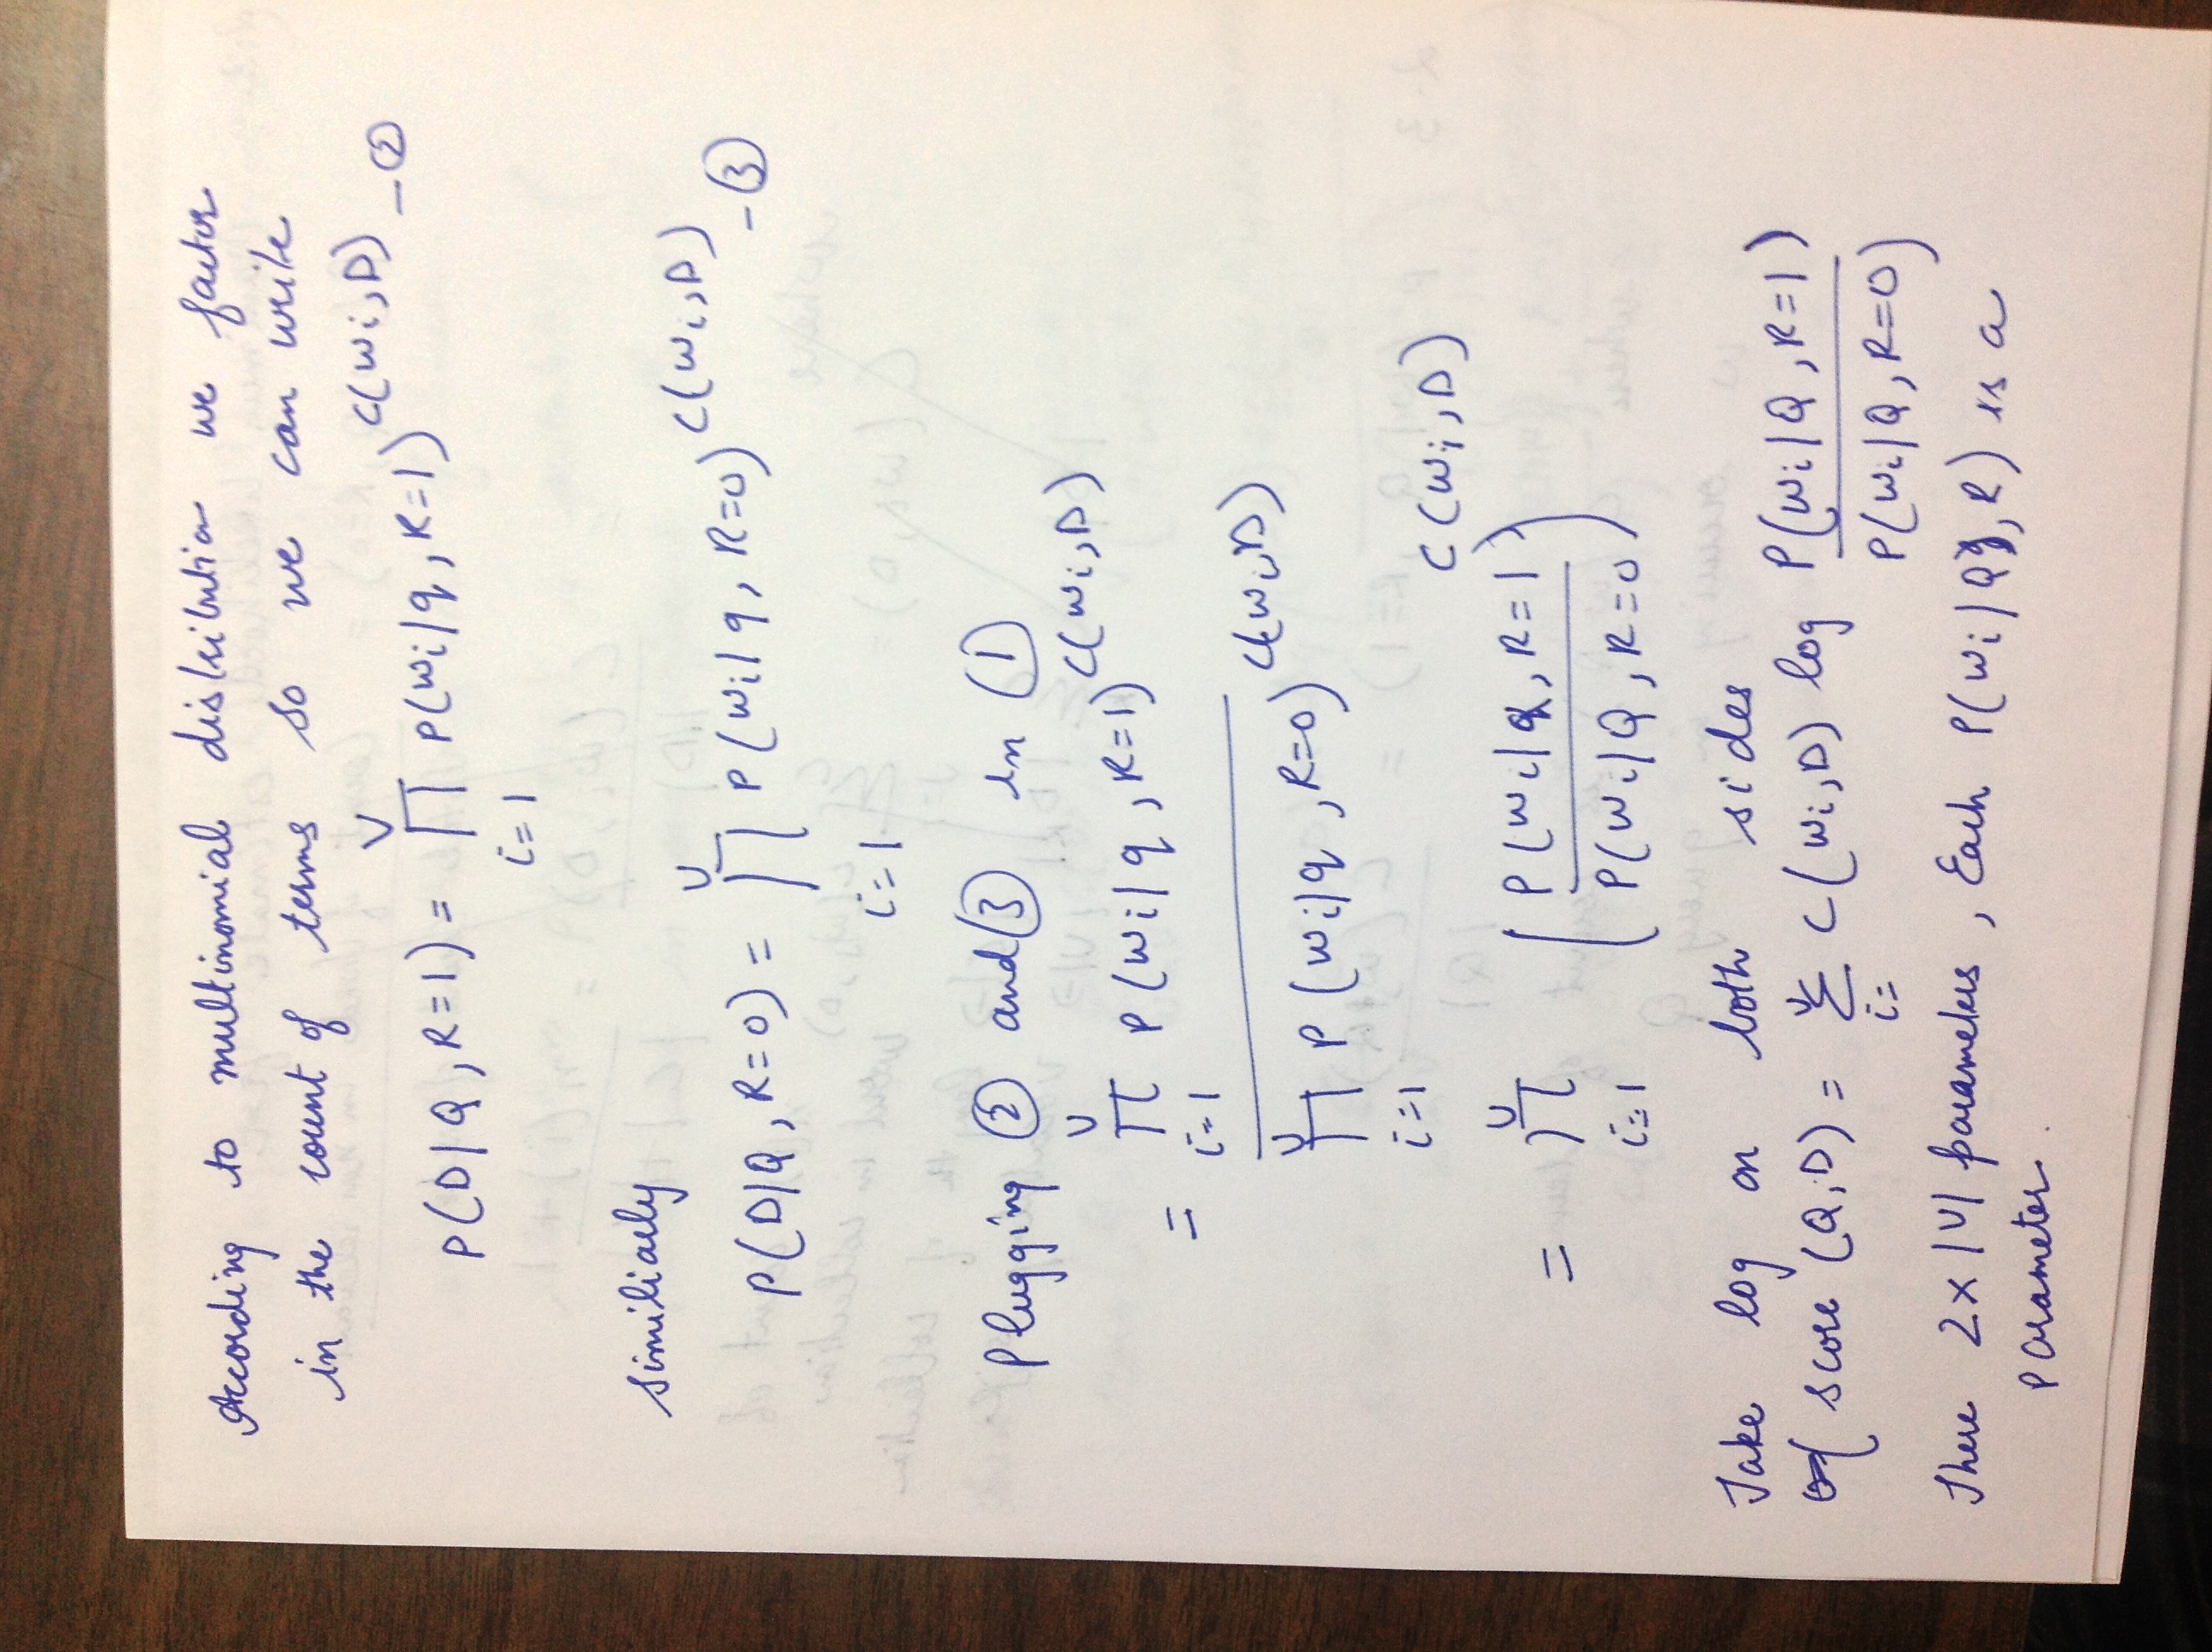 According to multinomial distribution we factor
in the count of terms so we can write
P(D|Q, R=1) = ∏_{i=1}^{V} P(wi|q, R=1)^{C(wi,D)} - ②
Similiarly
P(D|Q, R=0) = ∏_{i=1}^{V} P(wi|q, R=0)^{C(wi,D)} - ③
Plugging ② and ③ in ①
= ∏_{i=1}^{V} P(wi|q, R=1)^{C(wi,D)}
∏_{i=1}^{V} P(wi|q, R=0)^{C(wi,D)}
= ∏_{i=1}^{V} (P(wi|Q, R=1) / P(wi|Q, R=0))^{C(wi,D)}
Take log on both sides
score (Q,D) = Σ_{i=}^{V} C(wi,D) log P(wi|Q, R=1) / P(wi|Q, R=0)
There 2x|V| parameters, Each P(wi|Q, R) is a
parameter.